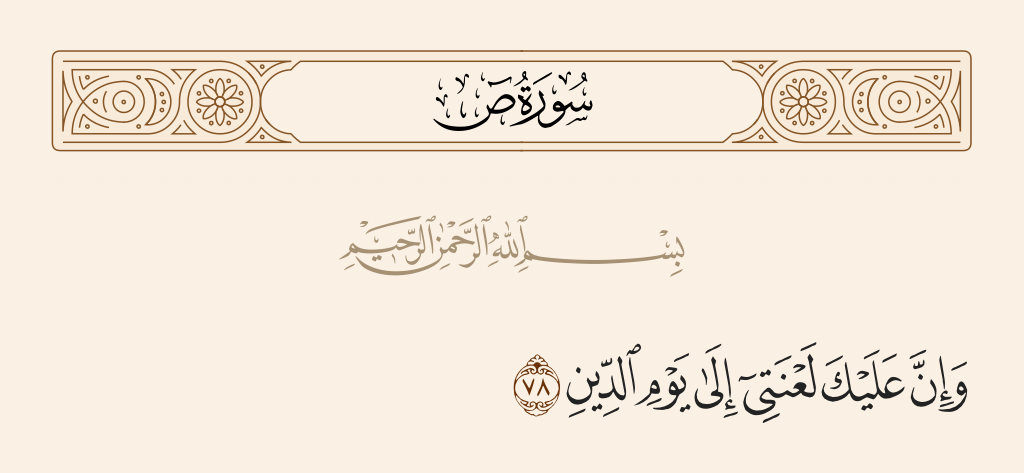 سُورَةُ صٓ
بِسْمِ ٱللَّهِ ٱلرَّحْمَٰنِ ٱلرَّحِيمِ
وَإِنَّ عَلَيْكَ لَعْنَتِىٓ إِلَىٰ يَوْمِ ٱلدِّينِ ٧٨